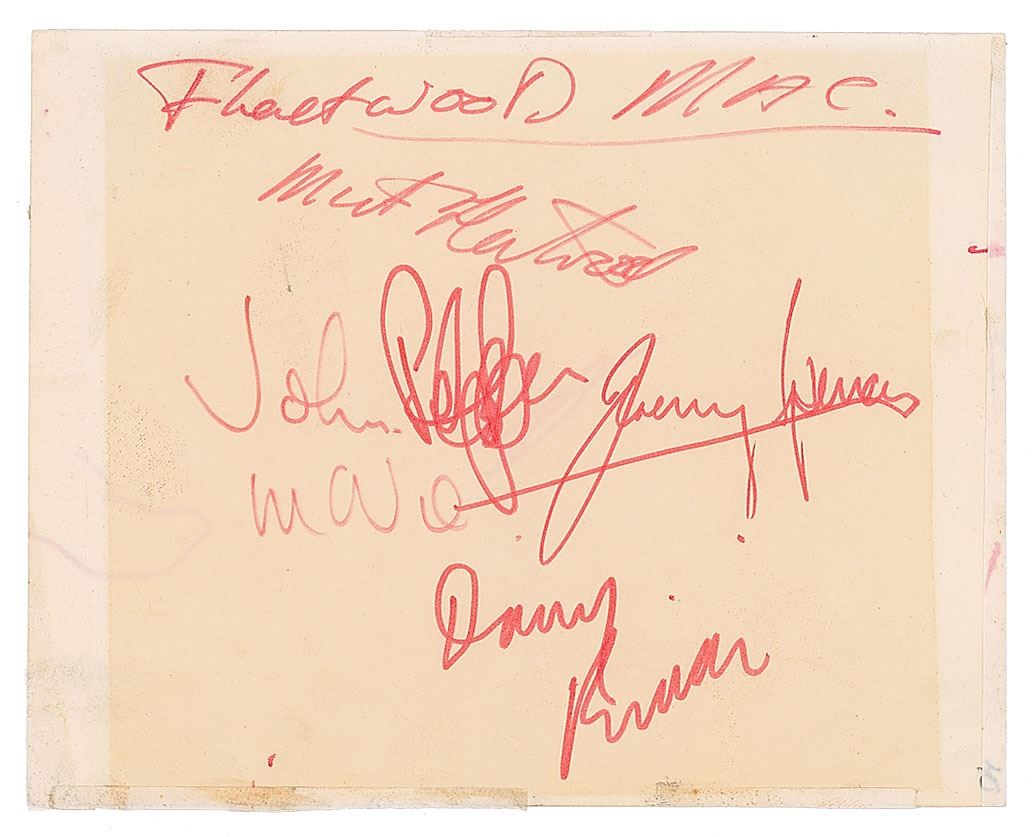 FleetwooD MAC.
Mick Fleetwood
John
Jeremy Spencer
McVie
Danny
Kirwan